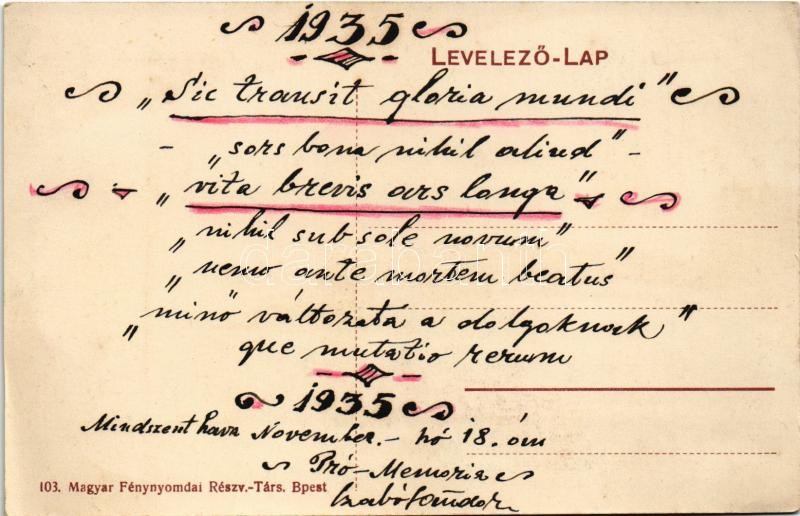 1935
LEVELEZŐ-LAP
„Sic transit gloria mundi"
- „sors bona nihil aliud" -
„vita brevis ars longa"
„nihil sub sole novum"
„nemo ante mortem beatus"
„minő változata a dolgoknak"
que mutatio rerum
1935
Mindszent hava November. - hó 18. án
Pró-Memoria
103. Magyar Fénynyomdai Részv.-Társ. Bpest
darabanth